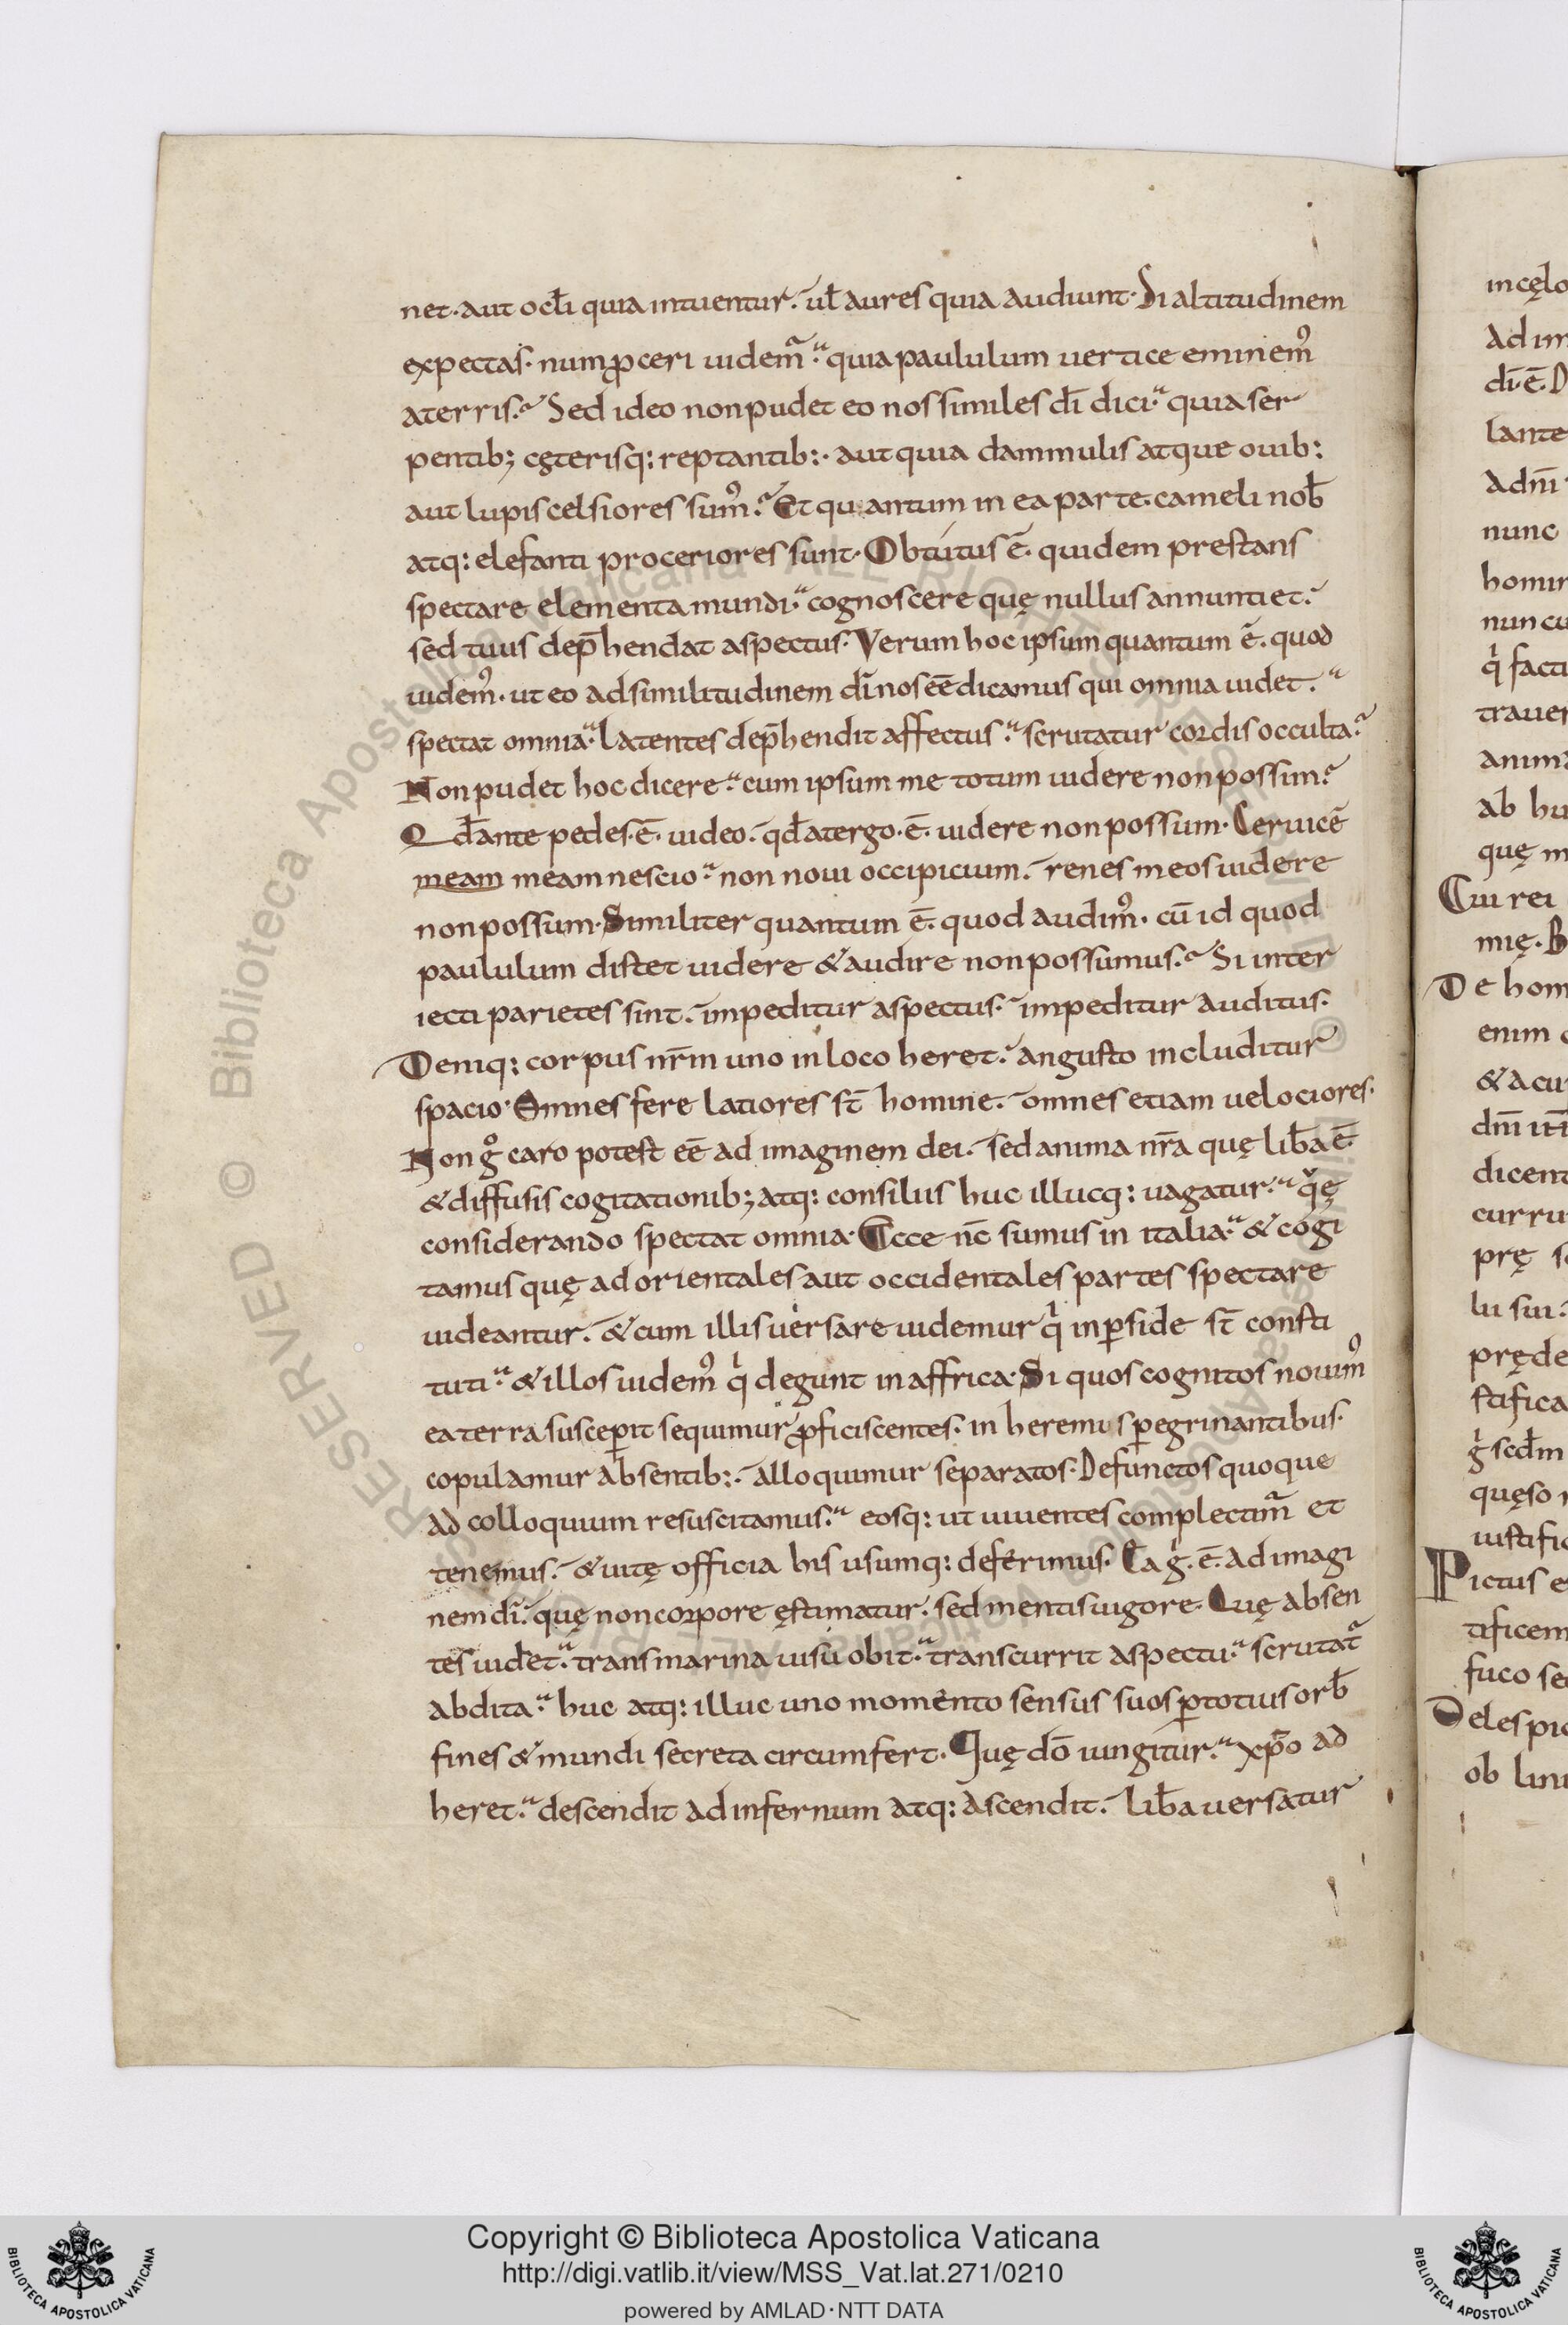 net· aut ocł̄i quia intuentur· ul̄ aures quia audiunt· Si altitudinem
expectas· num ꝓceri uidem̃· quia paululum uertice eminemꝰ
a terris? Sed ideo non pudet eo nos similes dī dici· quia ser
pentib; cęterisq: reptantib:· aut quia dammulis atque ouib:
aut lupis celsiores sumꝰ? Et quantum in ea parte· cameli nob̄
atq: elefanti proceriores sunt· Obtutus ē· quidem prestans
spectare elementa mundi· cognoscere quę nullus annuntiet·
sed tuus dep̄hendat aspectus· Verum hoc ipsum quantum ē· quod
uidemꝰ· ut eo ad similitudinem dī nos eē dicamus qui omnia uidet·
spectat omnia· latentes dep̄hendit affectus· scrutatur cordis occulta?
Non pudet hoc dicere· cum ipsum me totum uidere non possim?
Qd̄ ante pedes· ē· uideo· qd̄ a tergo· ē· uidere non possum· Ceruicē
meam meam nescio· non noui occipicium· renes meos uidere
non possum· Similiter quantum ē· quod audimꝰ· cū id quod
paululum distet uidere & audire non possumus? Si inter
iecti parietes sint· impeditur aspectus· impeditur auditus·
Deniq: corpus nr̄m uno in loco heret· angusto includitur
spacio· Omnes fere latiores st̄ homine· omnes etiam uelociores·
Non gͦ caro potest eē ad imaginem dei· sed anima nr̄a quę lib̄a ē·
& diffusis cogitationib; atq: consiliis huc illucq: uagatur· q̌ę
considerando spectat omnia· Ecce nc̄ sumus in italia· & cogi
tamus quę ad orientales aut occidentales partes spectare
uideantur· & cum illis uersare uidemur qⁱ in ꝑside st̄ consti
tuti· & illos uidemꝰ qⁱ degunt in affrica· Si quos cognitos nouimꝰ
ea terra susceꝑit sequimur ꝓficiscentes· in heremis ꝑegrinantibus·
copulamur absentib:· alloquimur separatos· Defunctos quoque
ad colloquium resuscitamus· eosq: ut uiuentes complectim̃ et
tenemus· & uitę officia his usumq: deferimus· Ea gͥ· ē· ad imagi
nem dī· quę non corpore ęstimatur· sed mentis uigore· Quę absen
tes uidet· transmarina uisu obit· transcurrit aspectu· scrutat̃
abdita· huc atq: illuc uno momento sensus suos ꝑ totius orb̄
fines & mundi secreta circumfert· Quę dō iungitur· xp̄o ad
heret· descendit ad infernum atq: ascendit· lib̄a uersatur
in cęlo
ad im
dī· ē·
lante
ad nī
nunc
homin
nun cu
qⁱ facti
trauer
anima
ab hu
quę m
Cui rei
mię·
De hom
enim
& a cu
dn̄i
dicent
curru
prę
lu sui·
pręde
stifica
quęso
iustific
Pictus e
tificem
fuco se
De les pic
ob lini
RESERVED © Biblioteca Apostolica Vaticana ALL RIGHTS RESERVED ©
Copyright © Biblioteca Apostolica Vaticana
http://digi.vatlib.it/view/MSS_Vat.lat.271/0210
powered by AMLAD · NTT DATA
BIBLIOTECA APOSTOLICA VATICANA
BIBLIOTECA APOSTOLICA VATICANA